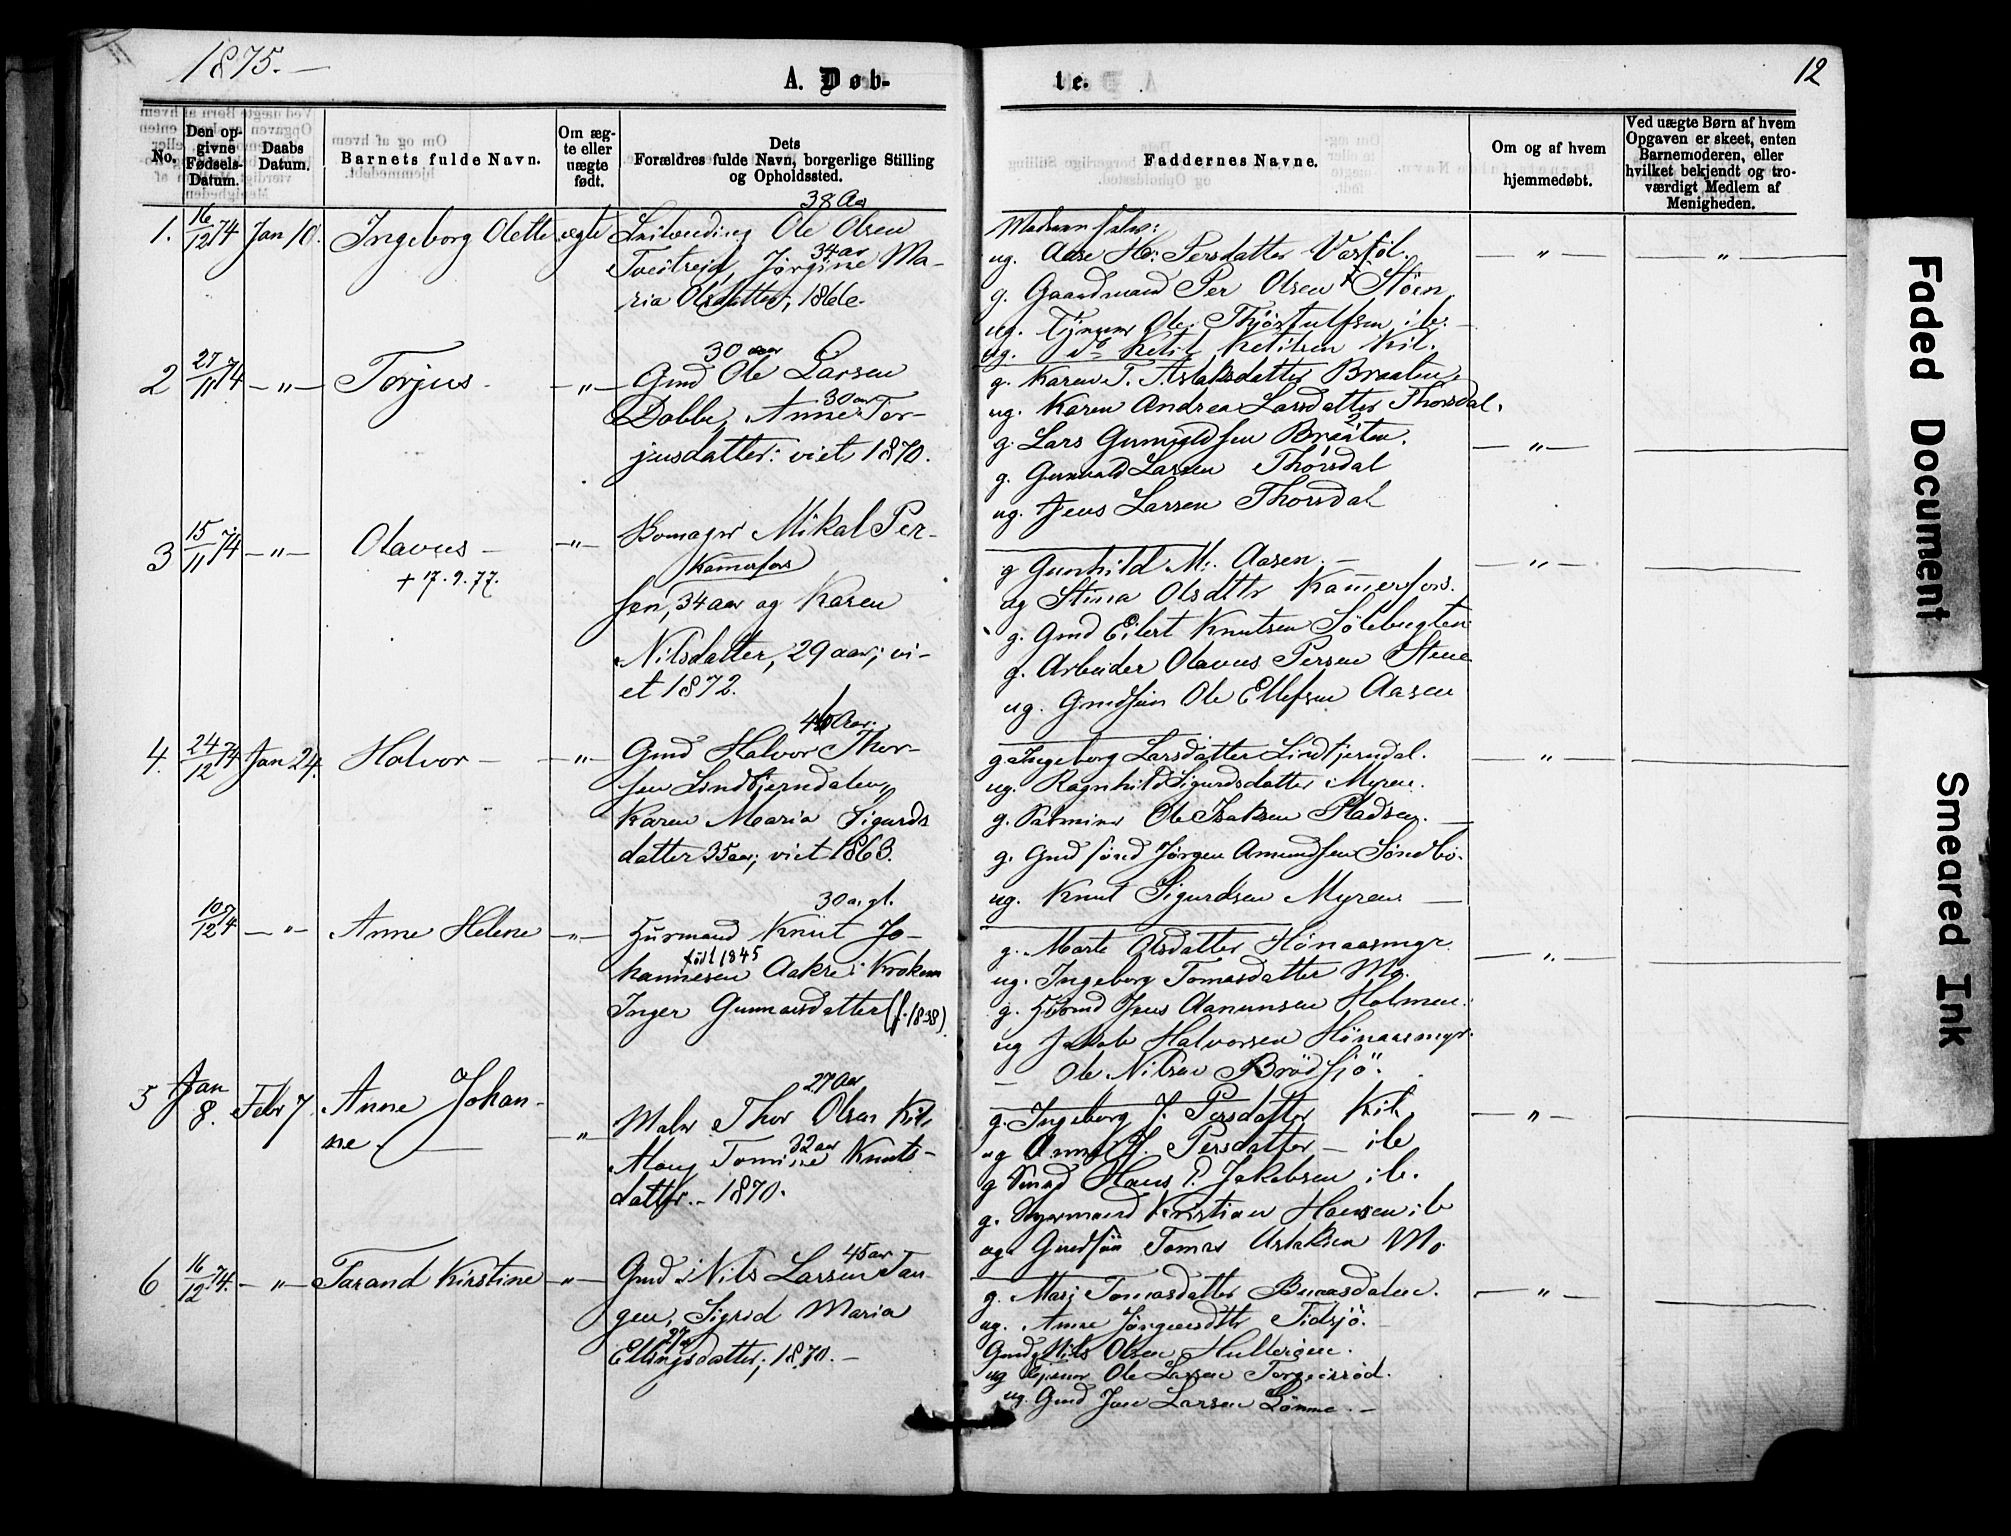 1875.—
12
A. Døb-
te.
No.
Den opgivne Fødsels-Datum.
Daabs Datum.
Barnets fulde Navn.
Om ægte eller uægte født.
Dets Forældres fulde Navn, borgerlige Stilling og Opholdssted.
Faddernes Navne.
Om og af hvem hjemmedøbt.
Ved uægte Børn af hvem Opgaven er skeet, enten Barnemoderen, eller hvilket bekjendt og troværdigt Medlem af Menigheden.
1. 16/12 74 Jan 10. Ingeborg Olette ægte
38 Aar
Ole Olsen
34 aar
Tveitreid, Jørgine Ma-
ria Olsdatter, 1866.
ug. Aase H. Persdatter
g. Gaardmand Per Olsen Støen
ug. Ole Thjøstulfsen ib.
ug. do Ketil Ketilsen Kil.
— " —
— " —
2 27/11 74 — " — Torjus — — " —
30 aar
Gmd Ole Larsen
30 aar
Dobbe, Anne Tor-
jusdatter: viet 1870.
g. Karen T. Aslaksdatter Braaten
ug. Karen Andrea Larsdatter Thorsdal.
g. Lars Braaten.
g. Gunvald Larsen Thorsdal
ug. Jens Larsen Thorsdal
— " —
3 15/11 74 — " — Olavus — — " —
+ 17.9.77.
Mikal Per-
Kamerfors
sen, 34 aar og Karen
Nilsdatter, 29 aar; vi-
et 1872.
g Gunhild M. Aasen —
ug Stina Olsdtr Kamerfors.
g. Gmd Eilert Knutsen Sølebugten
g. Arbeider Olavus Persen Stene
ug. Gmdsøn Ole Ellefsen Aasen
— " —
4. 24/12 74 Jan 24. Halvor — — " —
Aar.
Gmd Halvor Thor-
sen Lindtjerndalen,
Karen Maria Sigurds
datter 35 aar; viet 1863.
g. Ingeborg Larsdatter Lindtjerndal.
ug. Ragnhild Sigurdsdatter Myren.
g. Ole Isaksen Pladsen. —
g. Gmd Jørgen Amundsen Søndbø.
ug. Knut Sigurdsen Myren —
— " —
10/12 74 — " — Anne Helene — " —
30 a. gl.
Husmand Knut Jo-
født 1845
hannesen Aakre i Kroken
Inger Gunnarsdatter (f. 1838)
g. Marte Olsdatter Hønaasmyr
ug. Ingeborg Tomasdatter Mo.
g. Jens Aanunsen Holmen.
ug Jakob Halvorsen Hønaasmyr.
— Ole Nilsen Brødsjö.
— " —
5 Jan 8. Febr 7. Anne Johan-
ne. — — " —
27 Aar
Maler Thor Olsen Kil
32 aar
Tomine Knuts-
dattr. — 1870.
g. Ingeborg J. Persdatter Kil
ug Anne H. Persdatter — ib
g Smed Hans P. Jakobsen ib.
g. Styrmand Kristian Hansen ib
ug. Gmdsøn Tomas Aslaksen Mo.
— " —
6 16/12 74. — " — Tarand Kirstine — " —
45 aar
Gmd Nils Larsen Tan-
gen, Sigrid Maria
27 a
Ellingsdatter; 1870. —
g. Mari Tomasdatter
ug. Anne Jørgensdtr Tidsjö.
Gmd Nils Olsen
ug Ole Larsen Torgeirsrød.
ug. Gmd Jan Larsen Lønne. —
— " —
Faded Document
Smeared Ink